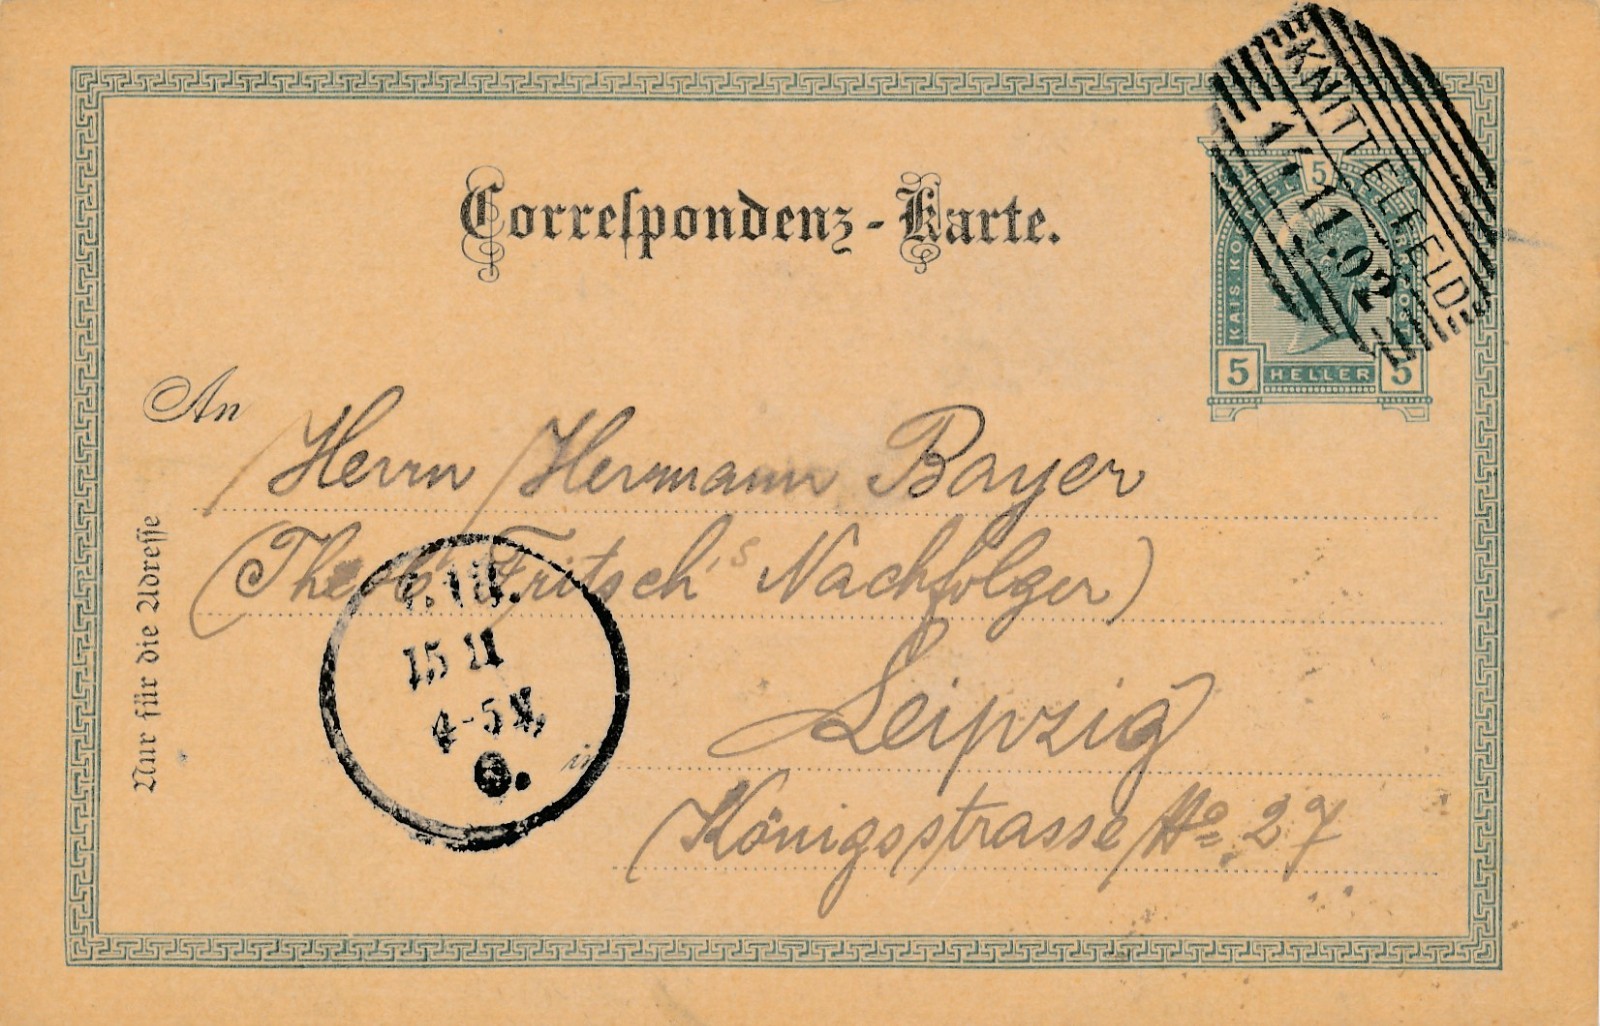 KNITTELFELD
11.02
5
KAIS.KO
5 HELLER 5
Correſpondenz-Karte.
An
Herrn Hermann Bayer
(Theod. Fritsch's Nachfolger)
15 11
4-5 N.
in Leipzig
Königsstrasse No 27
Nur für die Adreſſe